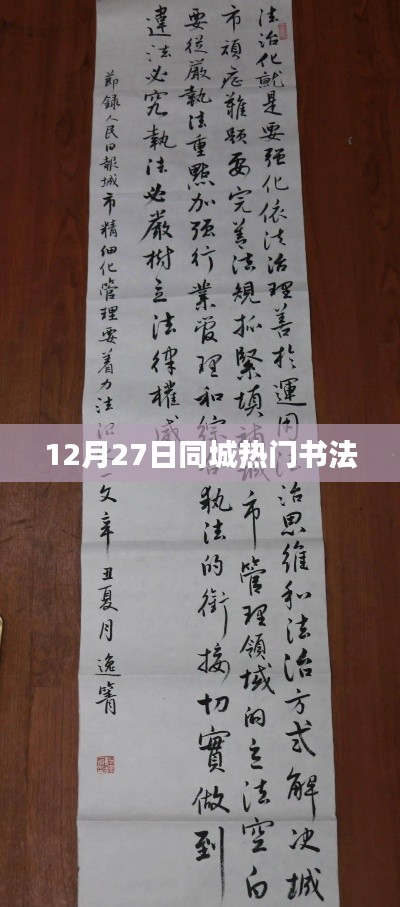 法治化就是要强化依法治理善於運用法治思維和法治方式解决城
市頑症難題要完善法規抓緊填補城市管理領域的立法空白
要從嚴執法重點加强行業管理和綜合執法的銜接切實做到
違法必究執法必嚴樹立法律權威
節錄人民日報城市精細化管理要着力法治一文辛丑夏月逸
12月27日同城热门书法